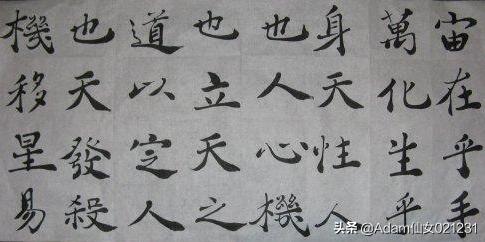 宙在乎手
萬化生乎
身天性人
也人心機
也立天之
道以定人
也天發殺
機移星易
头条 @Adam仙女021231